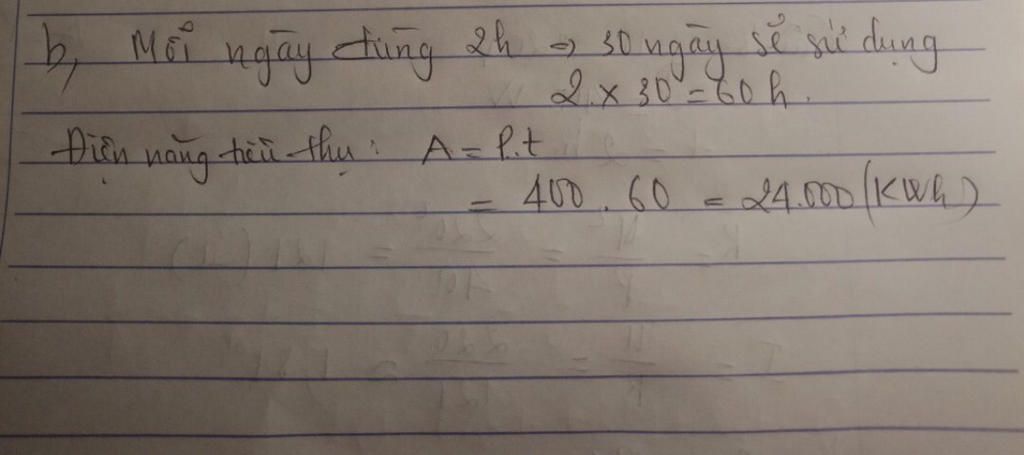 b, Mỗi ngày dùng 2h => 30 ngày sẽ sử dụng
2 x 30 = 60 h.
Điện năng tiêu thụ: A = P.t
= 400 . 60 = 24.000 (KWh)